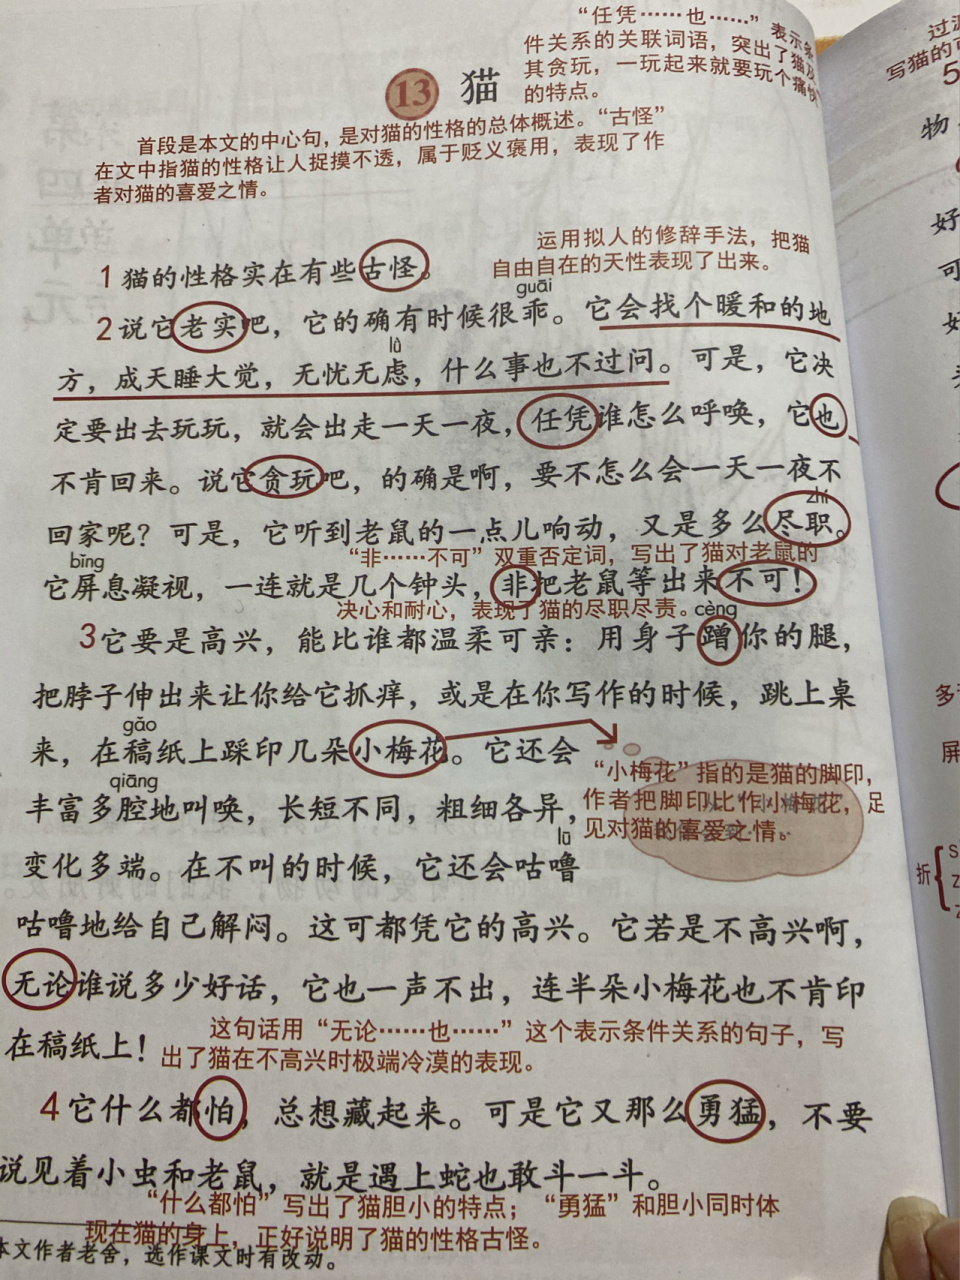 “任凭……也……”表示条
件关系的关联词语，突出了猫及
其贪玩，一玩起来就要玩个痛快
的特点。
13 猫
首段是本文的中心句，是对猫的性格的总体概述。“古怪”
在文中指猫的性格让人捉摸不透，属于贬义褒用，表现了作
者对猫的喜爱之情。
运用拟人的修辞手法，把猫
自由自在的天性表现了出来。
1 猫的性格实在有些古怪。
guāi
2 说它老实吧，它的确有时候很乖。它会找个暖和的地
lǜ
方，成天睡大觉，无忧无虑，什么事也不过问。可是，它决
定要出去玩玩，就会出走一天一夜，任凭谁怎么呼唤，它也
不肯回来。说它贪玩吧，的确是啊，要不怎么会一天一夜不
zhí
回家呢？可是，它听到老鼠的一点儿响动，又是多么尽职。
“非……不可”双重否定词，写出了猫对老鼠的
bǐng
它屏息凝视，一连就是几个钟头，非把老鼠等出来不可！
决心和耐心，表现了猫的尽职尽责。
cèng
3 它要是高兴，能比谁都温柔可亲：用身子蹭你的腿，
把脖子伸出来让你给它抓痒，或是在你写作的时候，跳上桌
gǎo
来，在稿纸上踩印几朵小梅花。它还会
qiāng
丰富多腔地叫唤，长短不同，粗细各异，
lū
变化多端。在不叫的时候，它还会咕噜
“小梅花”指的是猫的脚印，
作者把脚印比作小梅花，足
见对猫的喜爱之情。
咕噜地给自己解闷。这可都凭它的高兴。它若是不高兴啊，
无论谁说多少好话，它也一声不出，连半朵小梅花也不肯印
在稿纸上！
这句话用“无论……也……”这个表示条件关系的句子，写
出了猫在不高兴时极端冷漠的表现。
4 它什么都怕，总想藏起来。可是它又那么勇猛，不要
说见着小虫和老鼠，就是遇上蛇也敢斗一斗。
“什么都怕”写出了猫胆小的特点；“勇猛”和胆小同时体
现在猫的身上，正好说明了猫的性格古怪。
本文作者老舍，选作课文时有改动。
写猫的
5
物
好
可
好
多
屏
折